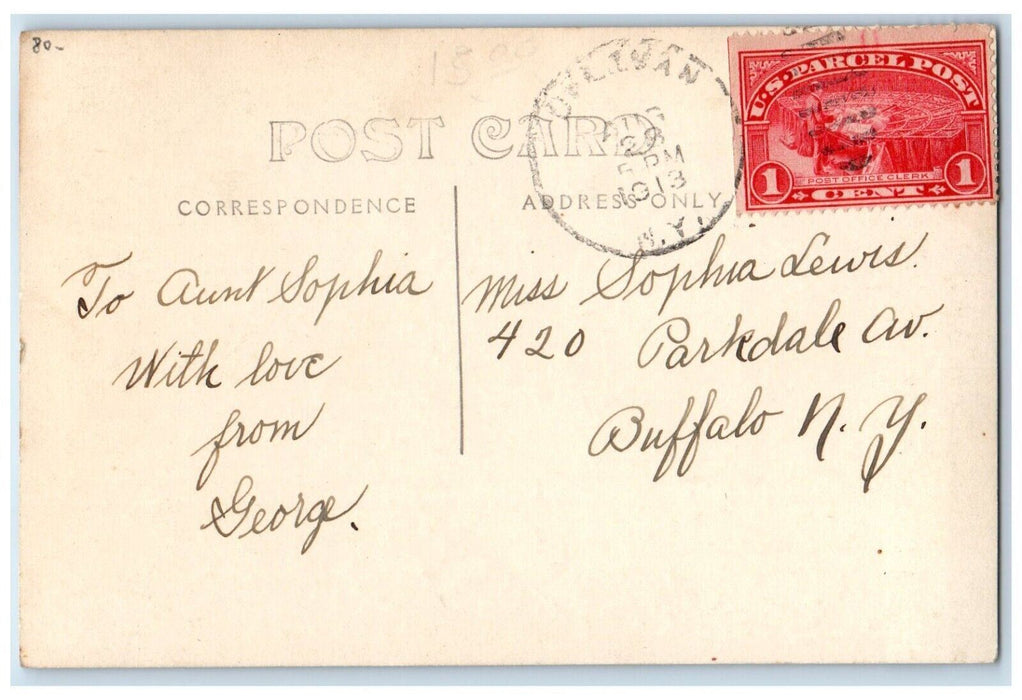 80-
15.00
POST CARD
CORRESPONDENCE
ADDRESS ONLY
N.Y.
28
PM
1913
U.S. PARCEL POST
POST OFFICE CLERK
1 CENT 1
To Aunt Sophia
With love
from
George.
Miss Sophia Lewis.
420 Parkdale Av.
Buffalo N. Y.